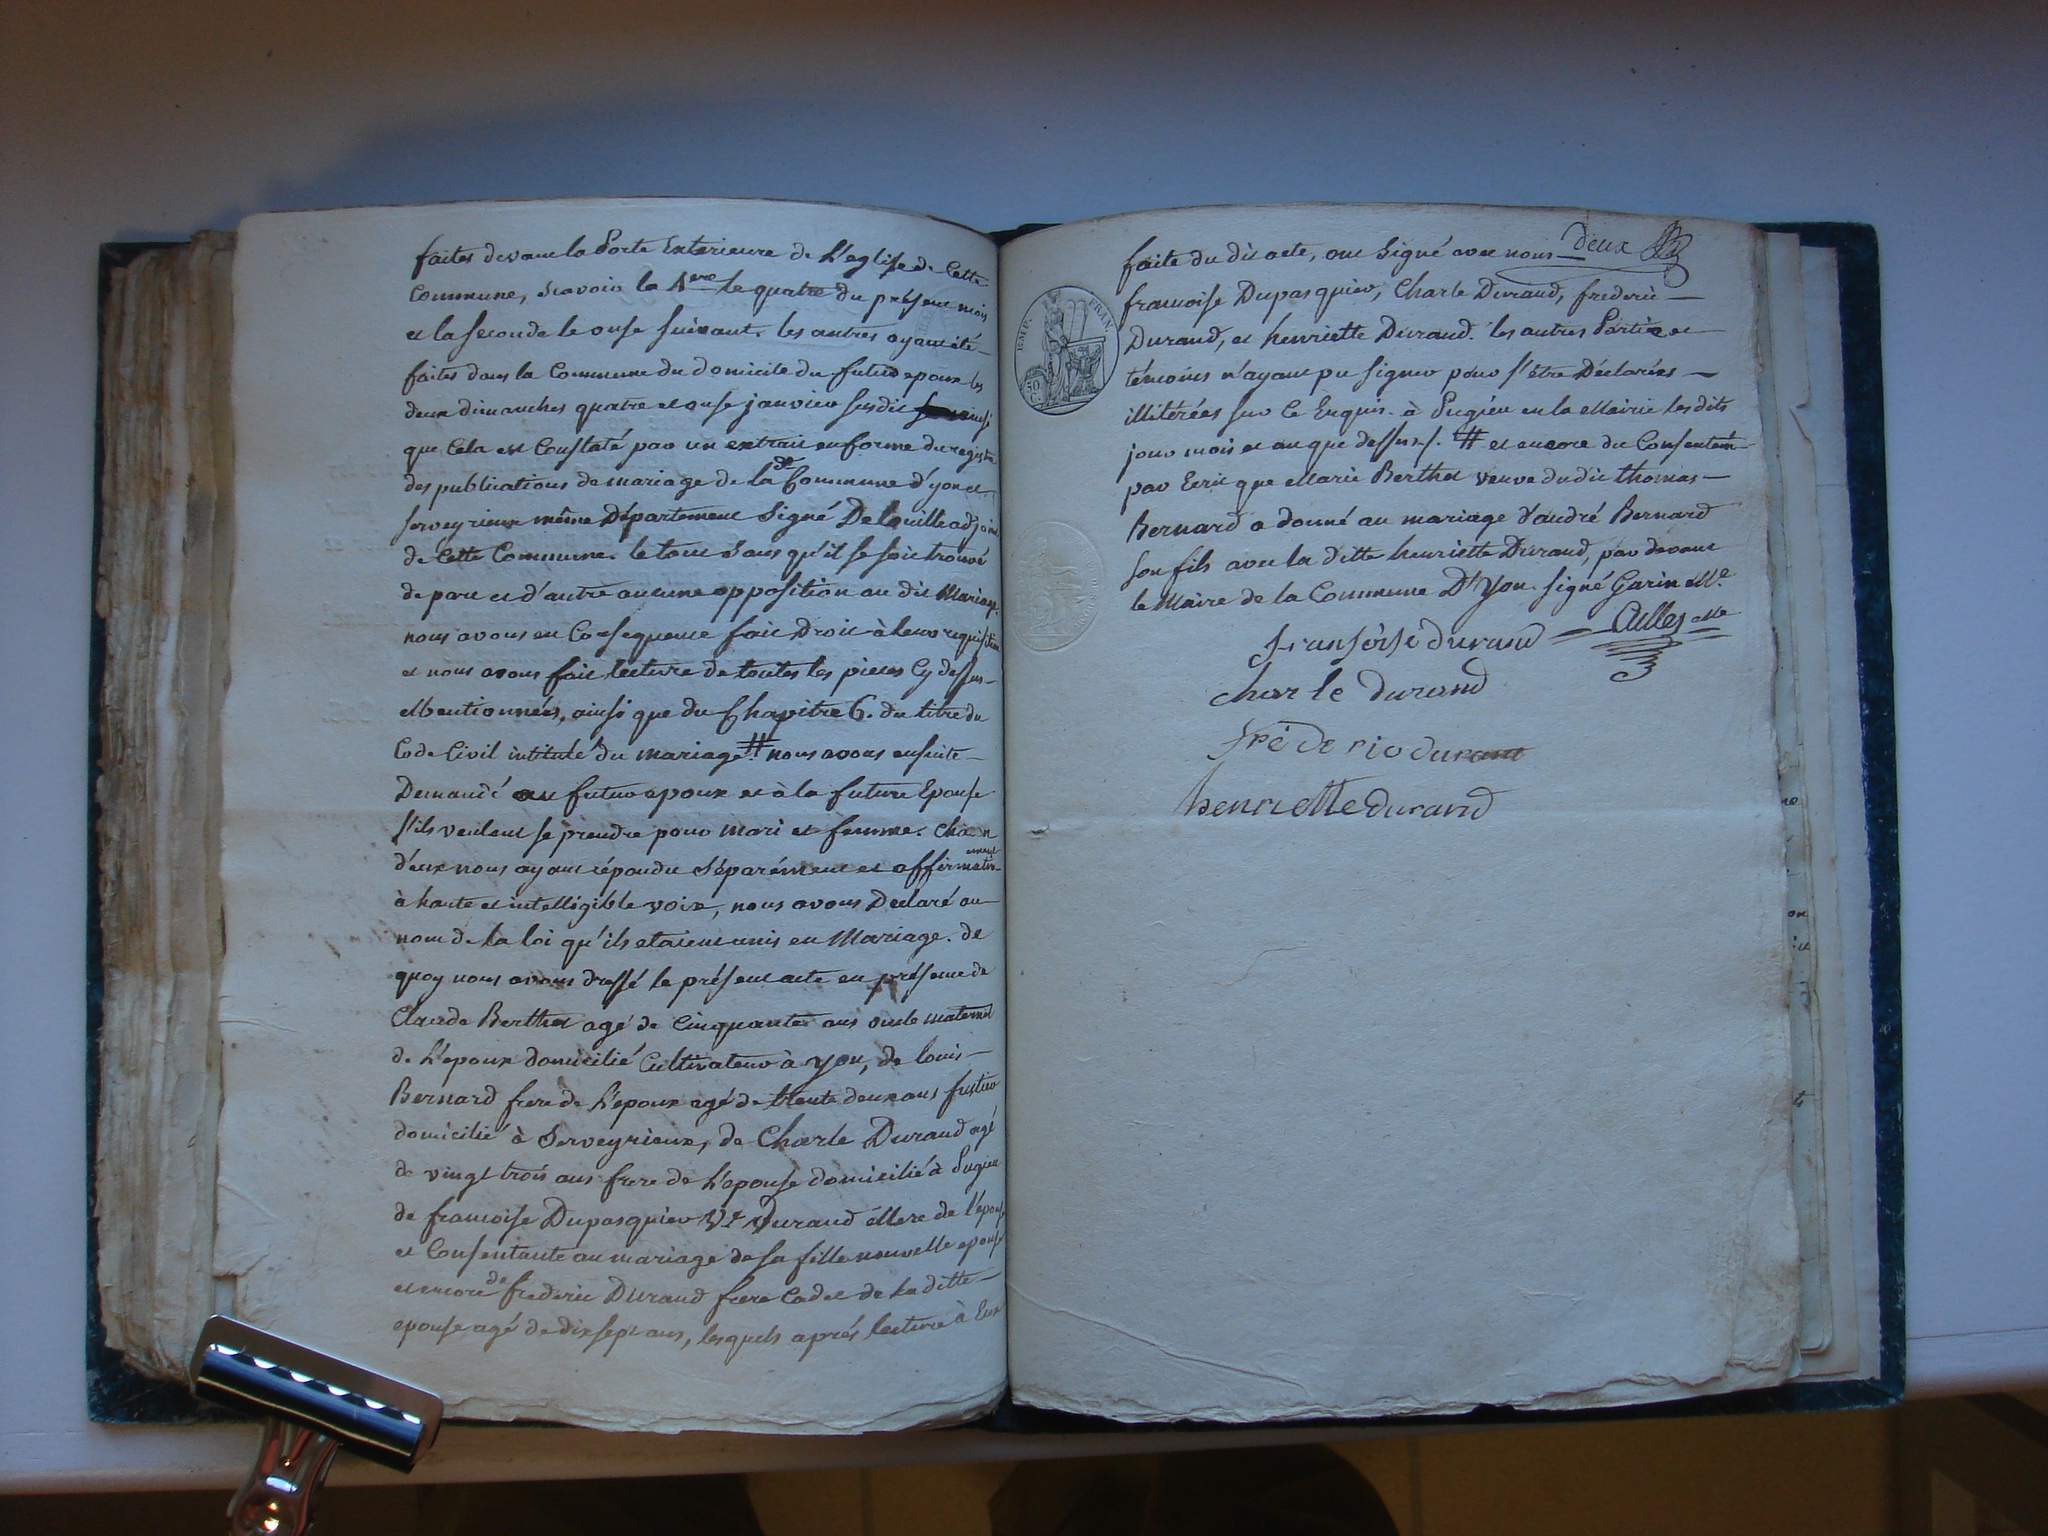 faites devant la Porte Exterieure de L'eglise de Cette
Commune, scavoir la 1ere le quatre du présent mois
et la seconde le onse suivant. les autres ayant été
faites dans la Commune du domicile du futur epoux les
deux dimanches quatre et onse janvier susdit ainsi
que Cela est Constaté par un extrait en forme du registre
des publications de mariage de la de Commune d'yon et
serveyrieux même Département Signé Delouille adjoint
de Cette Commune. le tout sans qu'il se soit trouvé
de part et d'autre aucune opposition au dit Mariage.
nous avons en Consequence fait Droit à leur requisition
et nous avons fait lecture de toutes les pieces Cy dessus
Mentionnées, ainsi que du Chapitre 6. du titre du
Code Civil intitulé du mariage # nous avons ensuite
Demandé au futur epoux et à la future Epouse
s'ils veulent se prendre pour mari et femme. chacun
d'eux nous ayant répondu séparément et affirmativement
à haute et intelligible voix, nous avons Déclaré au
nom de la loi qu'ils etaient unis en Mariage. de
quoy nous avons dressé le présent acte en présence de
Claude Berthet agé de Cinquante ans oncle maternel
de L'epoux domicilié Cultivateur à yon, de louis
Bernard frere de L'epoux agé de trente deux ans
domicilié à Serveyrieux, de Charle Durand agé
de vingt trois ans frere de L'epouse domicilié à Pugieu
de francoise Dupasquier Ve Durand Mere de l'epouse
et Consentante au mariage de sa fille nouvelle epouse
et encore de frederic Durand frere Cadet de la ditte
epouse agé de dix sept ans, lesquels après lecture à Eux
deux
faite du dit acte, ont signé avec nous
francoise Dupasquier, Charle Durand, frederic
Durand, et henriette Durand. les autres Parties et
témoins n'ayant pu signer pour s'être Déclarées
illitérées sur Ce Enquis. à Pugieu en la Mairie les dits
jour mois et an que dessus./. # et encore du Consentem.
par Ecrit que Marie Berthet veuve du dit thomas
Bernard a donné au mariage d'andré Bernard
son fils avec la ditte henriette Durand, par devant
le Maire de la Commune D'yon. signé Garin Me
EMP. FRAN.
50 C.
fransoise durand
charle durand
frédéric durant
henriette durand